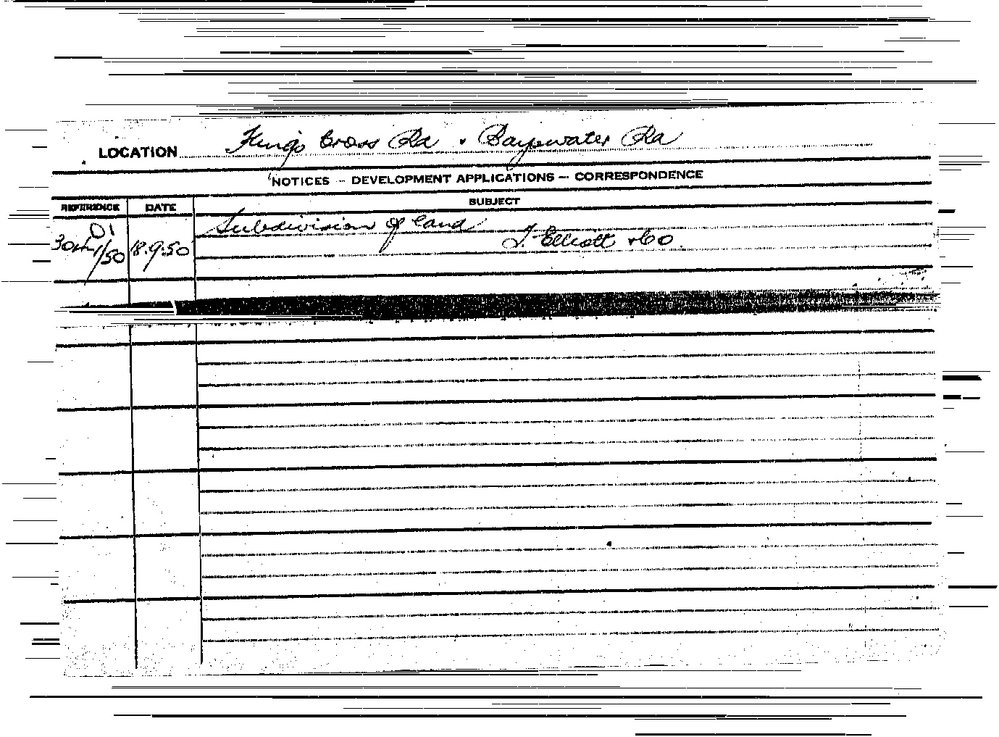 LOCATION Kings Cross Rd & Bayswater Rd
NOTICES – DEVELOPMENT APPLICATIONS – CORRESPONDENCE
REFERENCE DATE SUBJECT
01 Subdivision of land
/50 18.9.50 J. Elliott & Co.